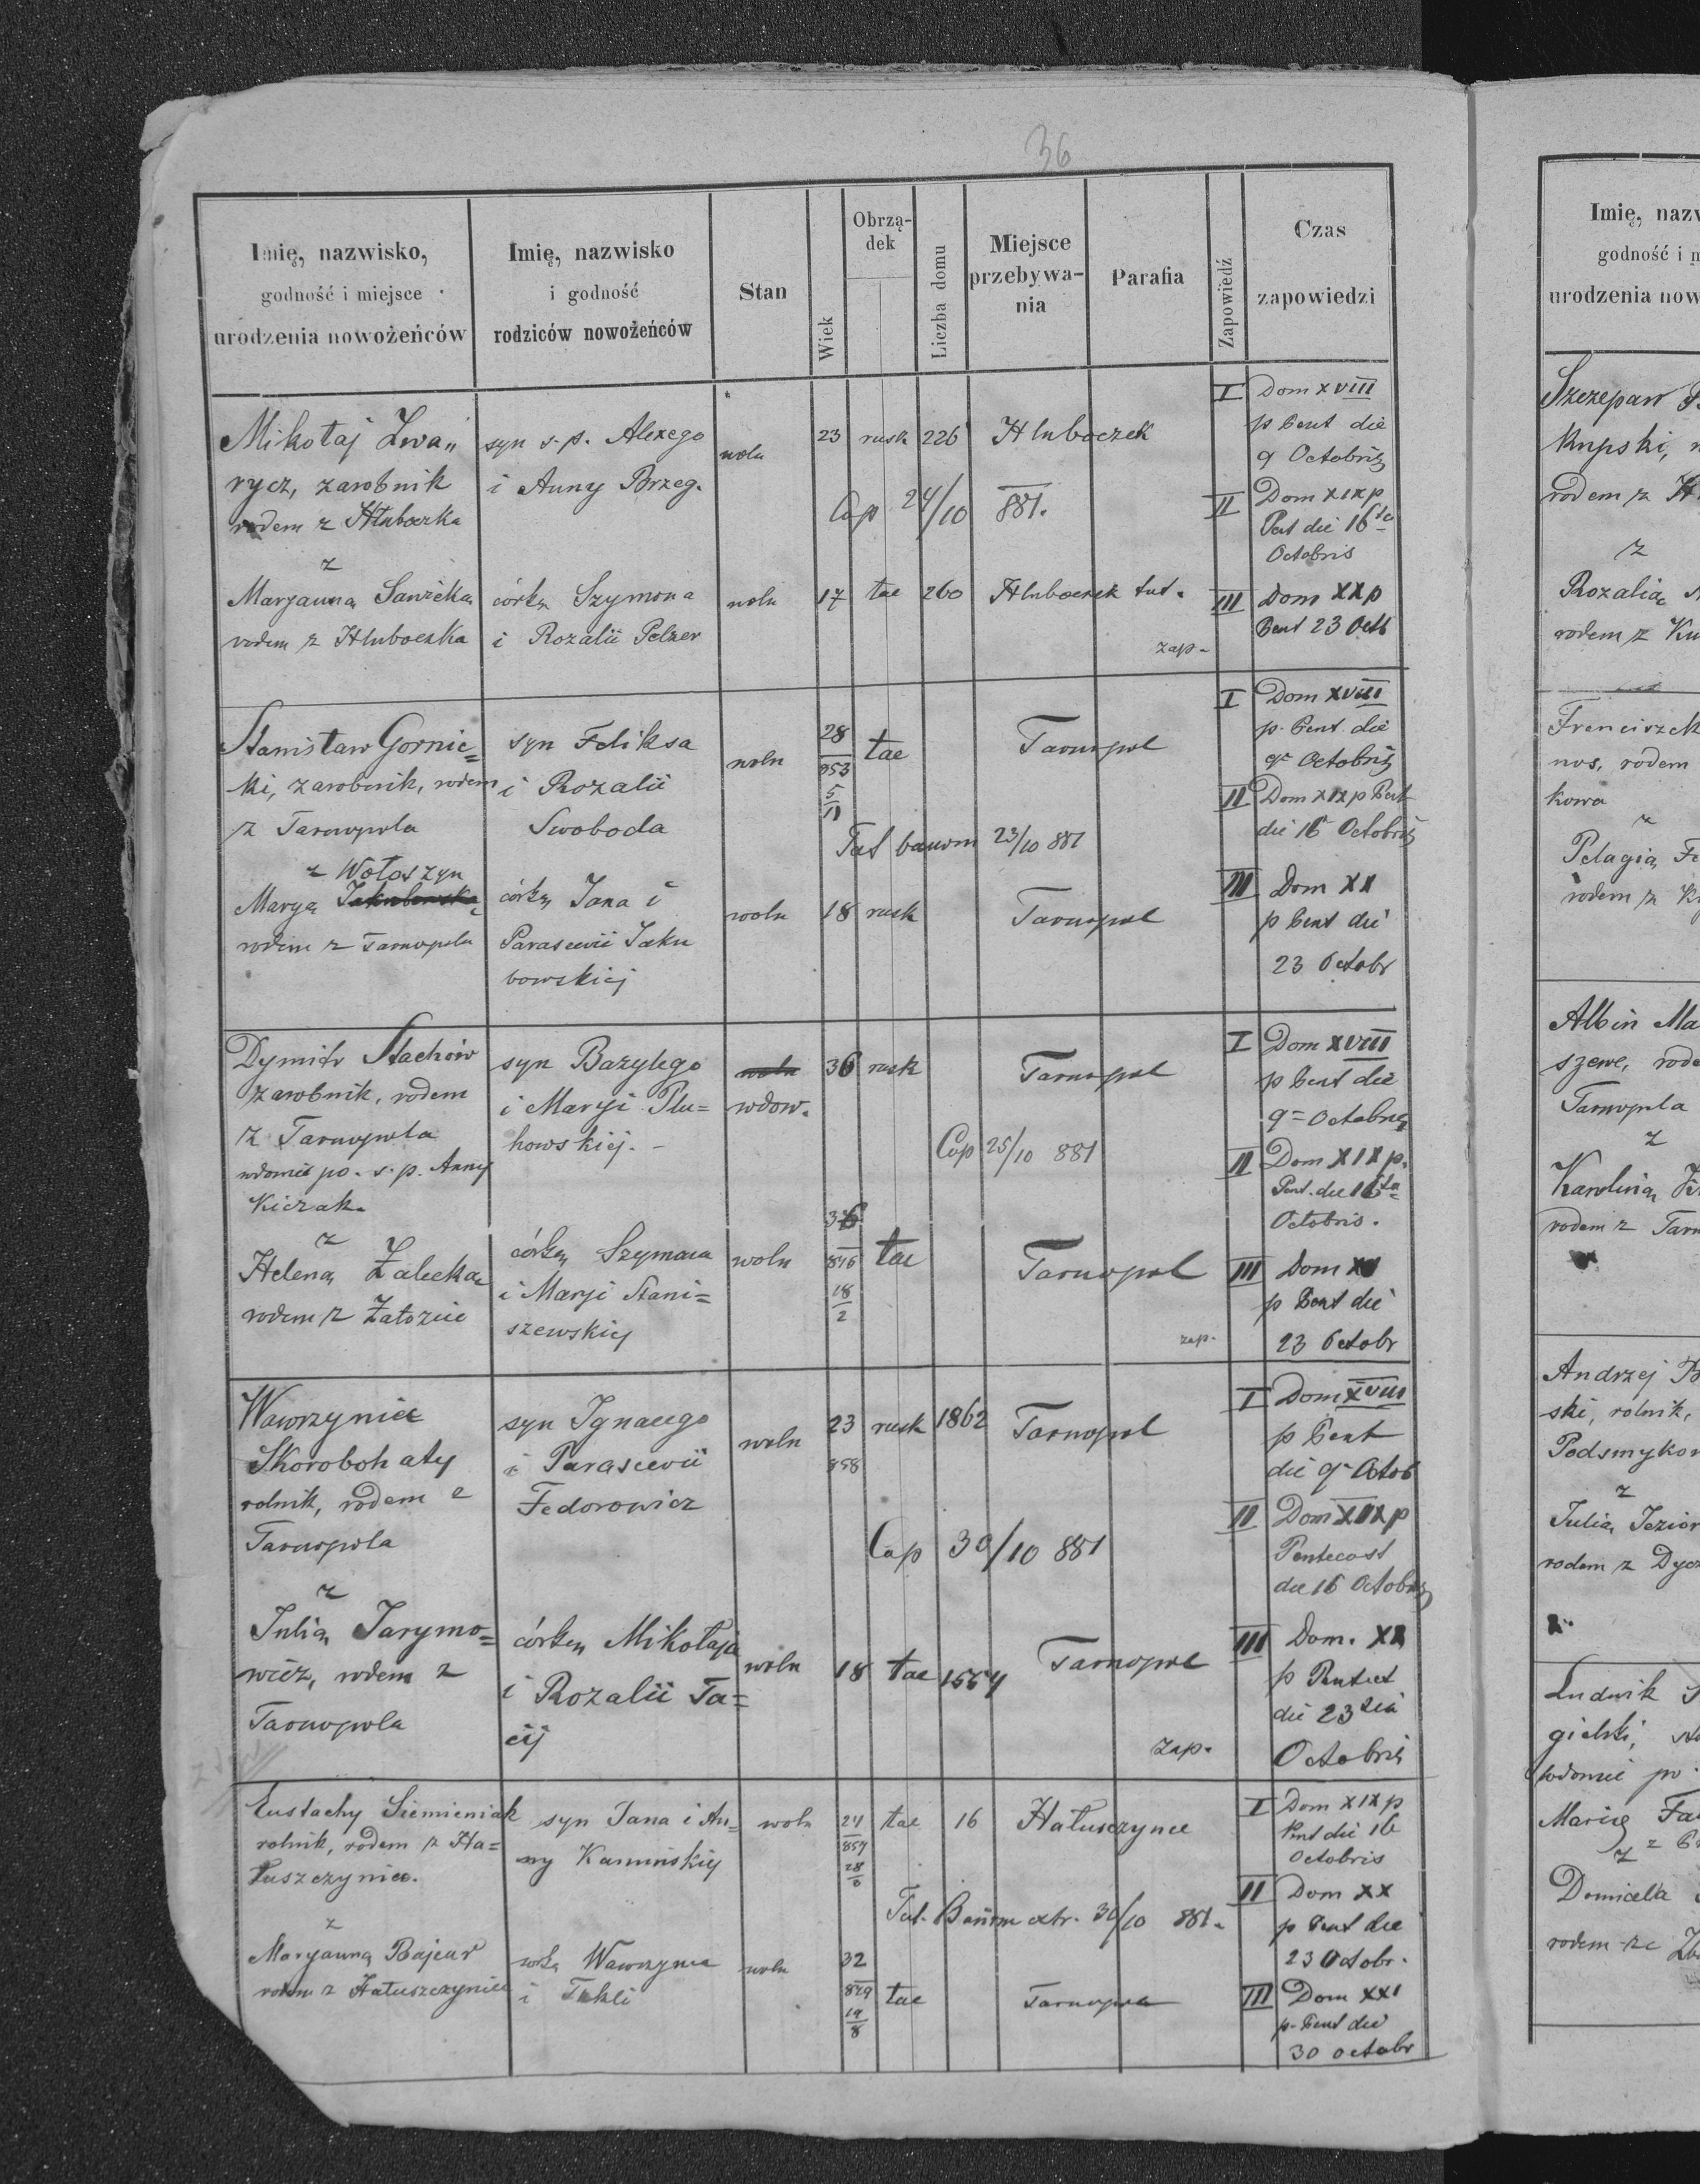 36
Imię, nazwisko,
godność i miejsce
urodzenia nowożeńców
Imię, nazwisko
i godność
rodziców nowożeńców
Stan
Wiek
Obrzą-
dek
Liczba domu
Miejsce
przebywa-
nia
Parafia
Zapowiedź
Czas
zapowiedzi
Mikołaj Zwa„
rycz, zarobnik
rodem z Hłuboczka
z
Maryanną Sawicką
rodem z Hluboczka
syn s. p. Alexego
i Anny Brzeg.
córką Szymona
i Rozalii Pelzer
woln
woln
23 rusk 226 Hluboczek
Cop 24/10 881.
17 tac 260 Hluboczek tut.
zap.
I Dom XVIII
p Pent die
9 Octobris
II Dom XIX p
Pent die 16ta
Octobris
III Dom XX p
Pent 23 Octb
Stanisław Gornic=
ki, zarobnik, rodem
z Tarnopola
z Wołoszyn
Maryą Jakubowską
rodem z Tarnopola
syn Feliksa
i Rozalii
Swoboda
córką Jana i
Parascevii Jaku
bowskiej
woln
woln
28
853
5
11
tac Tarnopol
Tut banom 23/10 881
18 rusk Tarnopol
I Dom XVIII
p. Pent. die
9 Octobris
II Dom XIX p Pent
die 16 Octobris
III Dom XX
p Pent die
23 Octobr
Dymitr Stachów
zarobnik, rodem
z Tarnopola
wdowiec po. s. p. Anny
Kiczak.
z
Heleną Zalecką
rodem z Załoziec
syn Bazylego
i Maryi Plu=
howskiej. -
córką Szymona
i Maryi Stani=
szewskiej
woln
wdow.
woln
36 rusk Tarnopol
Cop 25/10 881
36
846
18
2
tac Tarnopol
zap.
I Dom XVIII
p Pent die
9= Octobris
II Dom XIX p.
Pent. die 16ta
Octobris.
III Dom XX
p Pent die
23 Octobr
Wawrzyniec
Skorobohaty
rolnik, rodem z
Tarnopola
z
Julią Jarymo=
wicz, rodem z
Tarnopola
syn Ignacego
i Parascevii
Fedorowicz
córką Mikołaja
i Rozalii Ta=
cij
woln
woln
23 rusk 1862 Tarnopol
858
Cop 30/10 881
18 tac 1554 Tarnopol
zap.
I Dom XVIII
p Pent
die 9 Octob
II Dom XIX p
Pentecost
die 16 Octobris
III Dom. XX
p Pentect
die 23tia
Octobris
Eustachy Siemieniak
rolnik, rodem z Ha=
łuszczyniec.
z
Maryanną Bajcar
rodem z Hałuszczyniec
syn Jana i An=
ny Kamińskiej
córką Wawrzyńca
i Tekli
woln
woln
24
857
28
6
tac 16 Hałuszczynce
Tut. Banom extr. 30/10 881.
32
849
19
8
tac Tarnopol
I Dom XIX p
Pent die 16
Octobris
II Dom XX
p Pent die
23 Octobr.
III Dom XXI
p. Pent die
30 octobr
Imię, nazw
godność i m
urodzenia now
Szczepan
Kupski,
rodem z H
z
Rozalią
rodem z Ku
Franciszek
nos, rodem
kowa
z
Pelagią Fe
rodem z
Albin Ma
szewe, rode
Tarnopola
z
Karoliną
rodem z Tarn
Andrzej B
ski, rolnik,
Podsmykow
z
Julią Jezior
rodem z Dycz
Ludwik
gielski,
wdowiec po
Maryę Fa
z
Domicela
rodem ze Zb